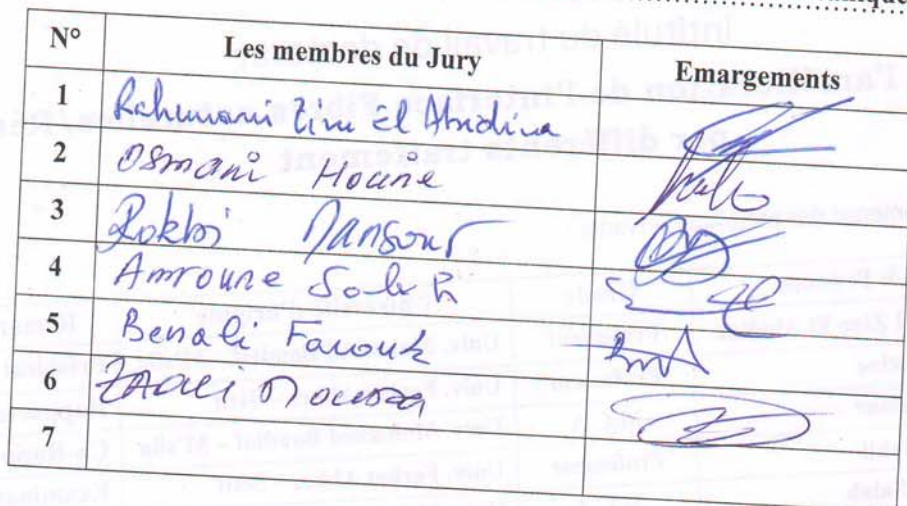 N° Les membres du Jury Emargements
1 Rahmani Zine El Abidine
2 Osmani Hocine
3 Rokbi Mansour
4 Amroune Salah
5 Benali Farouk
6 Zaoui Moussa
7